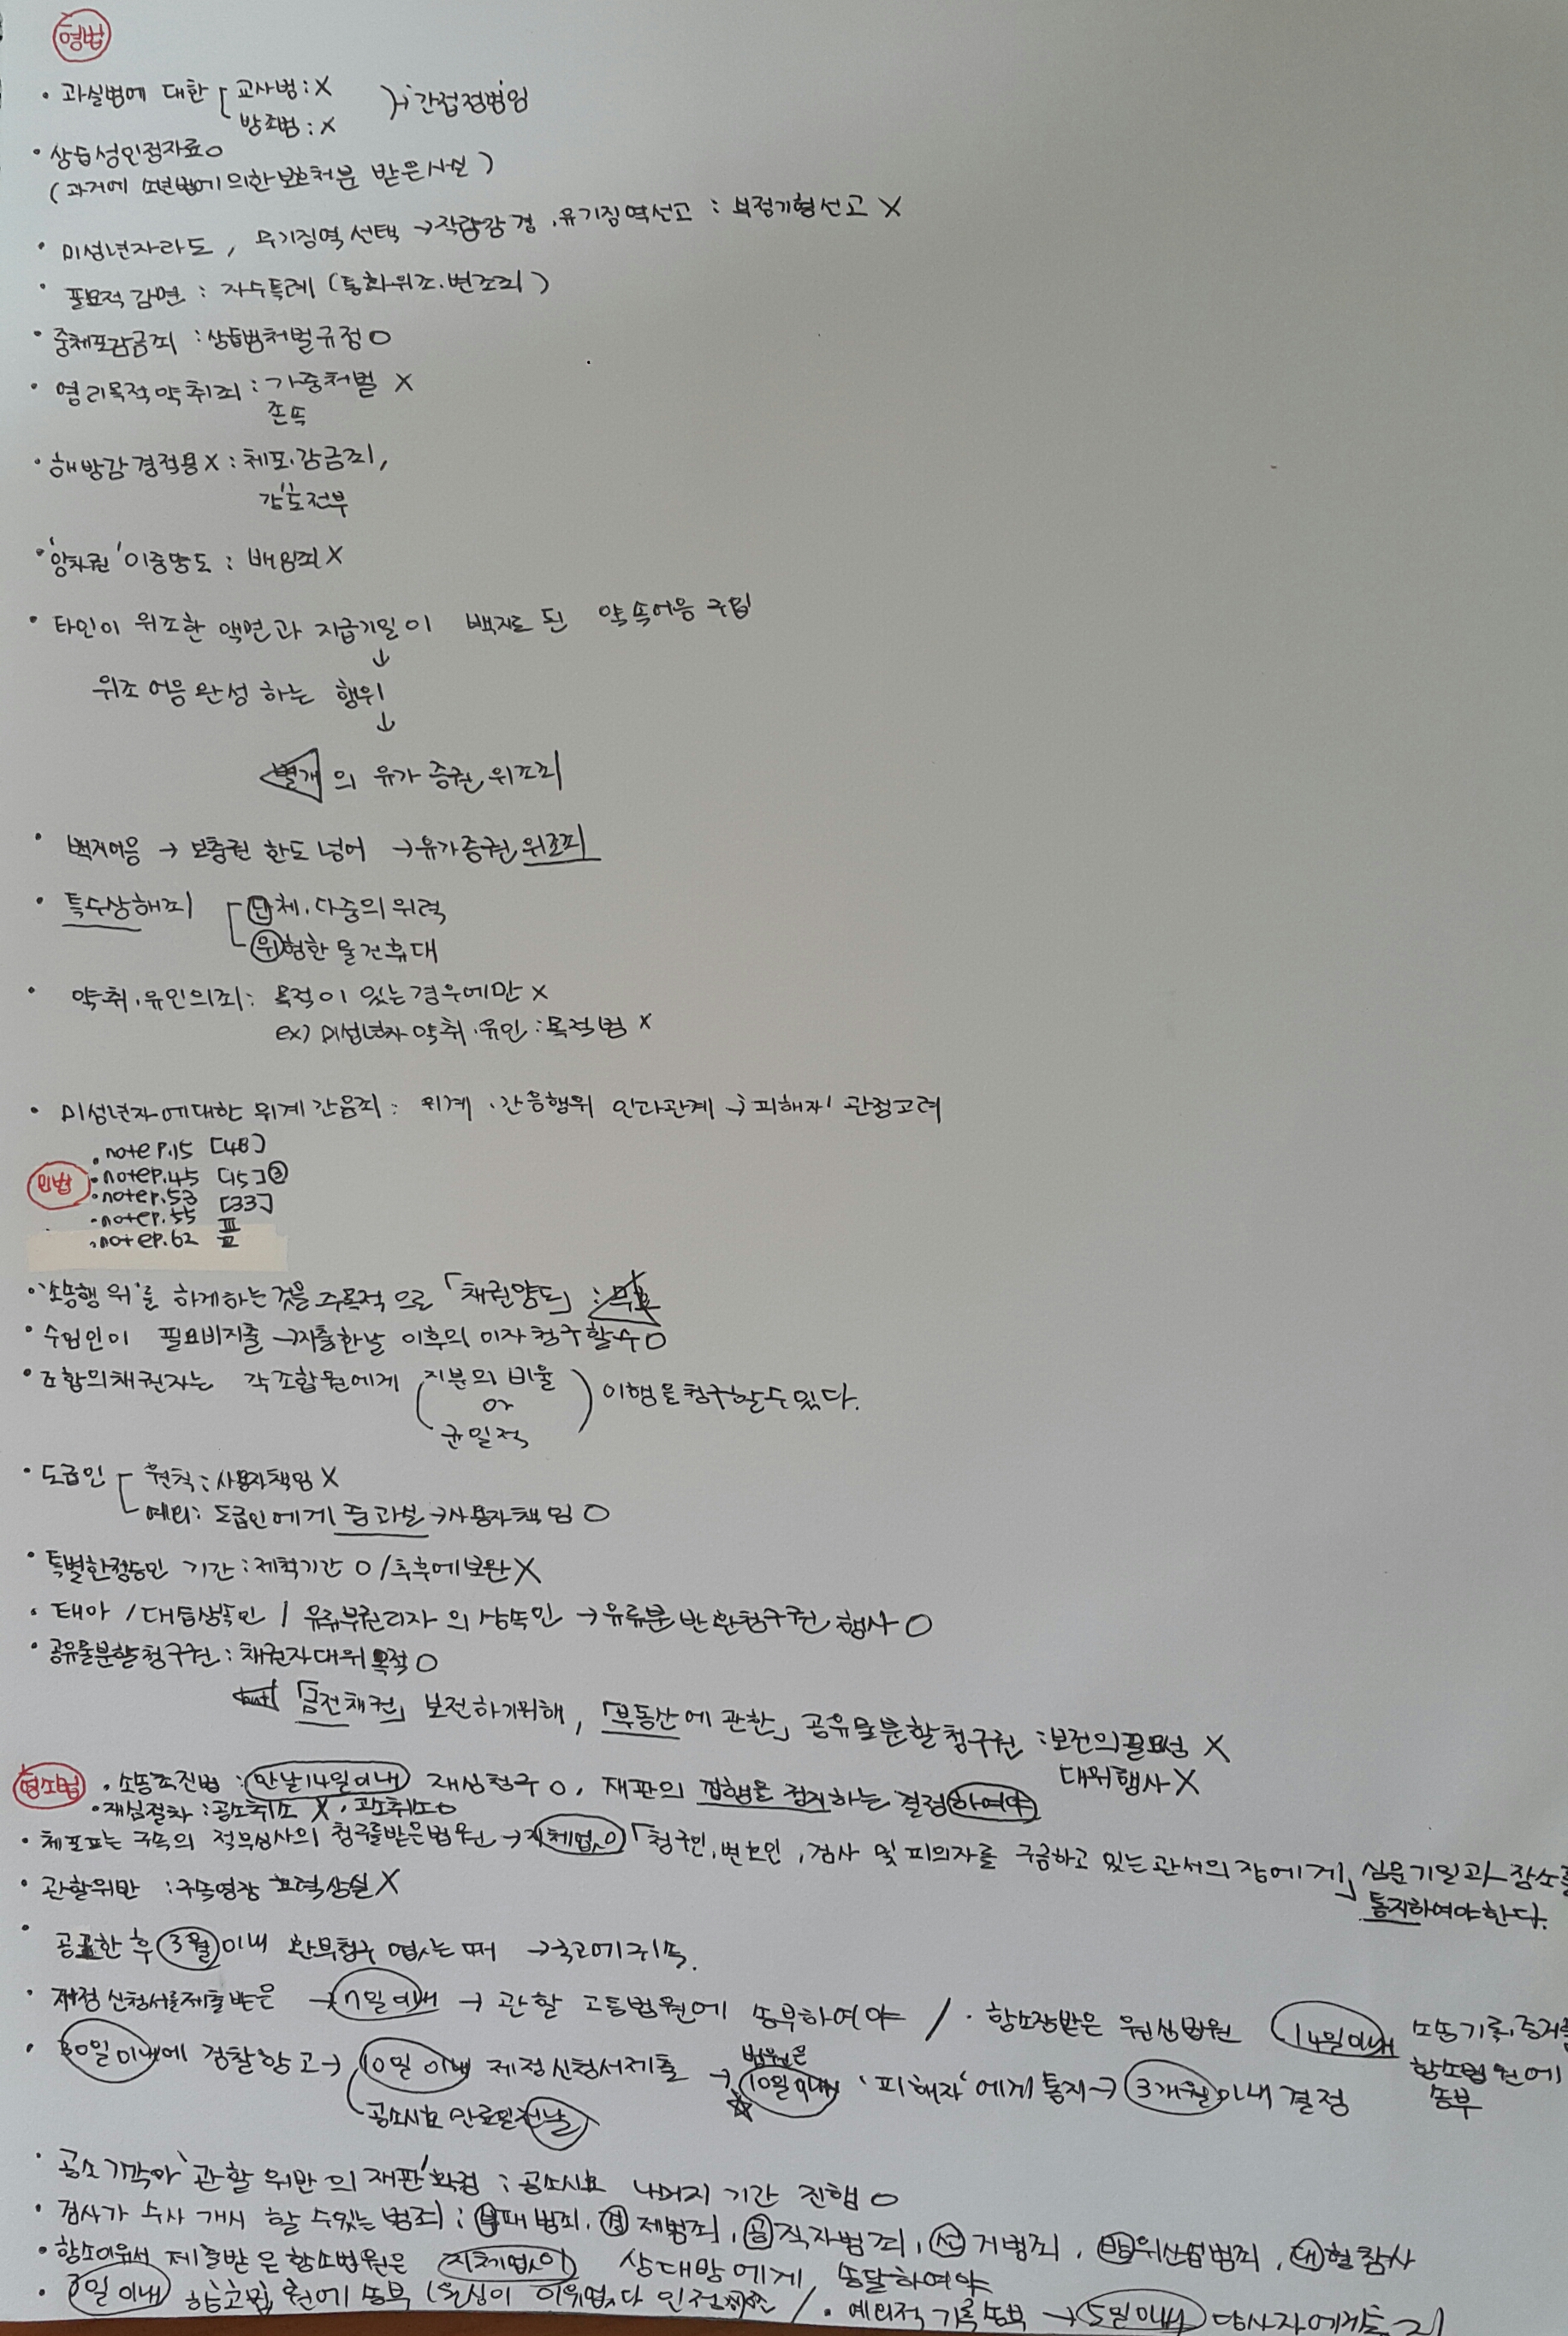 형법
• 과실범에 대한 [ 교사범 : X
방조범 : X } → 간접정범임
• 상습성인정자료 O
( 과거에 소년법에 의한 보호처분 받은 사실 )
• 미성년자라도, 무기징역 선택 → 작량감경, 유기징역선고 : 부정기형선고 X
• 필요적 감면 : 자수특례 (통화위조.변조죄)
• 중체포감금죄 : 상습범처벌규정 O
• 영리목적약취죄 : 가중처벌 X
존속
• 해방감경적용 X : 체포.감금죄,
강도전부
• '양차권' 이중양도 : 배임죄 X
• 타인이 위조한 액면과 지급기일이 백지로 된 약속어음 구입
↓
위조어음 완성 하는 행위
↓
별개의 유가증권 위조죄
• 백지어음 → 보충권 한도 넘어 → 유가증권 위조죄
• 특수상해죄 [ 단체.다중의 위력
위험한 물건휴대
• 약취.유인의죄 : 목적이 있는 경우에만 X
ex) 미성년자 약취.유인 : 목적범 X
• 미성년자에대한 위계간음죄 : 위계.간음행위 인과관계 → '피해자' 관점고려
민법
• note p.15 [48]
• note p.45 [15] ③
• note p.53 [33]
• note p.55 Ⅲ
• note p.62 Ⅱ
• '소송행위'를 하게하는 것을 주목적으로 「채권양도」 : 무효
• 수임인이 필요비지출 → 지출한날 이후의 이자청구할수 O
• 조합의채권자는 각조합원에게 ( 지분의 비율
or
균일적 ) 이행을청구할수있다.
• 도급인 [ 원칙 : 사용자책임 X
예외 : 도급인에게 중과실 → 사용자책임 O
• 특별한정승인 기간 : 제척기간 O / 추후에보완 X
• 태아 / 대습상속인 / 유류분권리자의 상속인 → 유류분반환청구권 행사 O
• 공유물분할청구권 : 채권자대위 목적 O
but 「금전채권」 보전하기위해, 「부동산에 관한」 공유물분할청구권 : 보전의필요성 X
대위행사 X
형소법
• 소송촉진법 : 안날14일이내 재심청구 O, 재판의 집행을 정지하는 결정하여야
• 재심절차 : 공소취소 X, 고소취소 O
• 체포또는 구속의 적부심사의 청구를받은법원 → 지체없이 「청구인, 변호인, 검사 및 피의자를 구금하고 있는 관서의 장에게」 심문기일과 장소를
통지하여야한다.
• 관할위반 : 구속영장 효력상실 X
• 공고한 후 3월 이내 환부청구 없는 때 → 국고에귀속.
• 재정신청서를제출받은 → 7일이내 → 관할 고등법원에 송부하여야 / • 항소장받은 원심법원 14일이내 소송기록,증거를
항소법원에
송부
• 30일이내에 검찰항고 → 10일 이내 재정신청서제출 → 법원은 10일이내 '피해자'에게 통지 → 3개월이내 결정
공소시효 만료일전날
• 공소기각이나 '관할위반의 재판' 확정 : 공소시효 나머지 기간 진행 O
• 검사가 수사 개시 할 수있는 범죄 : 부패범죄, 경제범죄, 공직자범죄, 선거범죄, 방위산업범죄, 대형참사
• 항소이유서 제출받은항소법원은 지체없이 상대방에게 송달하여야
• 3일이내 항고법원에 송부 (원심이 이유없다 인정 / • 예외적 기록송부 → 5일이내 당사자에게통지